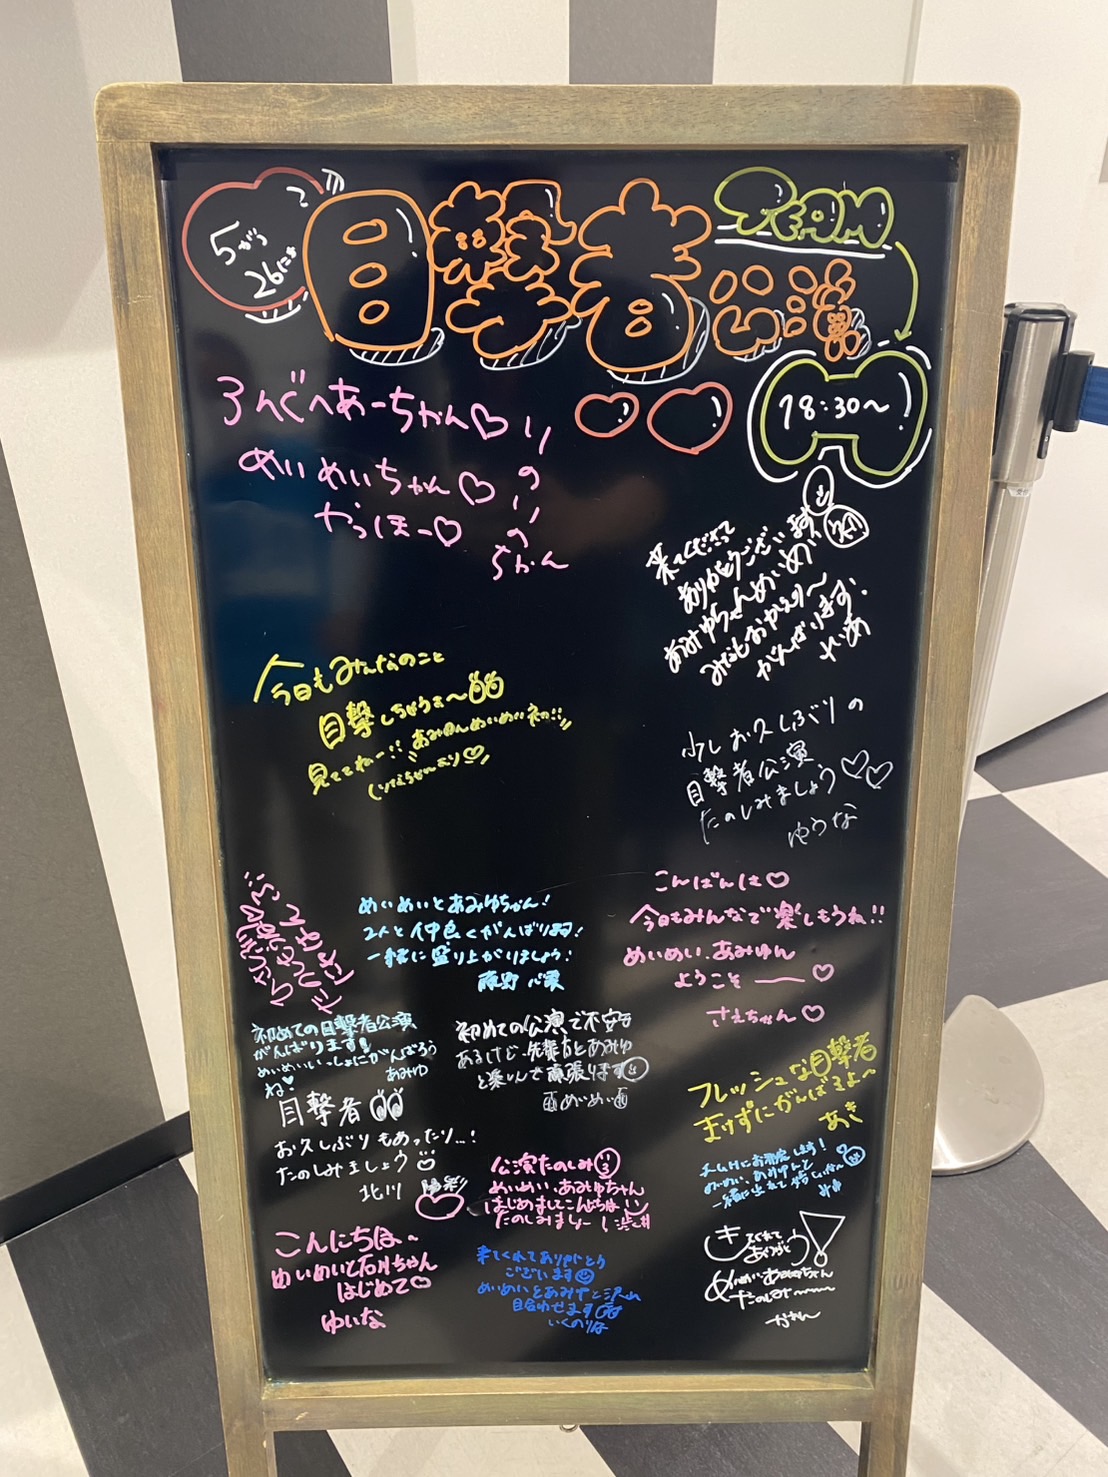 5がつ
26にち
目撃者公演
TEAM
18:30〜
ろんぐへあーちゃん♡
めいめいちゃん♡
やっほー♡
りのりのちゃん
来てくださって
ありがとうございます
あみゆちゃんめいめい
がんばります.
今日もみんなのこと
目撃しちゃうぞ〜
見ててねー!!
少しお久しぶりの
目撃者公演
たのしみましょう♡♡
ゆうな
めいめいとあみゆちゃん!
2人と仲良くがんばります!
一緒に盛り上がりましょう!
こんばんは♡
今日もみんなで楽しもうね!!
めいめい、あみゆん
ようこそ——♡
さえちゃん♡
初めての目撃者公演
がんばります!
めいめいいっしょにがんばろう
ね♡
あみゆ
初めての公演で不安も
あるけど、先輩方とあみゆ
と楽しんで頑張ります
めいめい
目撃者
お久しぶりもあったり...!
たのしみましょう
北川 陽彩
フレッシュな目撃者
まけずにがんばるよ〜
あき
公演たのしみ
めいめい、あみゆちゃん
はじめましてこんにちは
たのしみましょー!
こんにちは〜
めいめいと石川ちゃん
はじめて♡
ゆいな
来てくれてありがとう
ございます
めいめいとあみゆと沢山
目合わせます
いくのりな
きてくれて
ありがとう!
めいめいあみゆちゃん
たのしみ〜